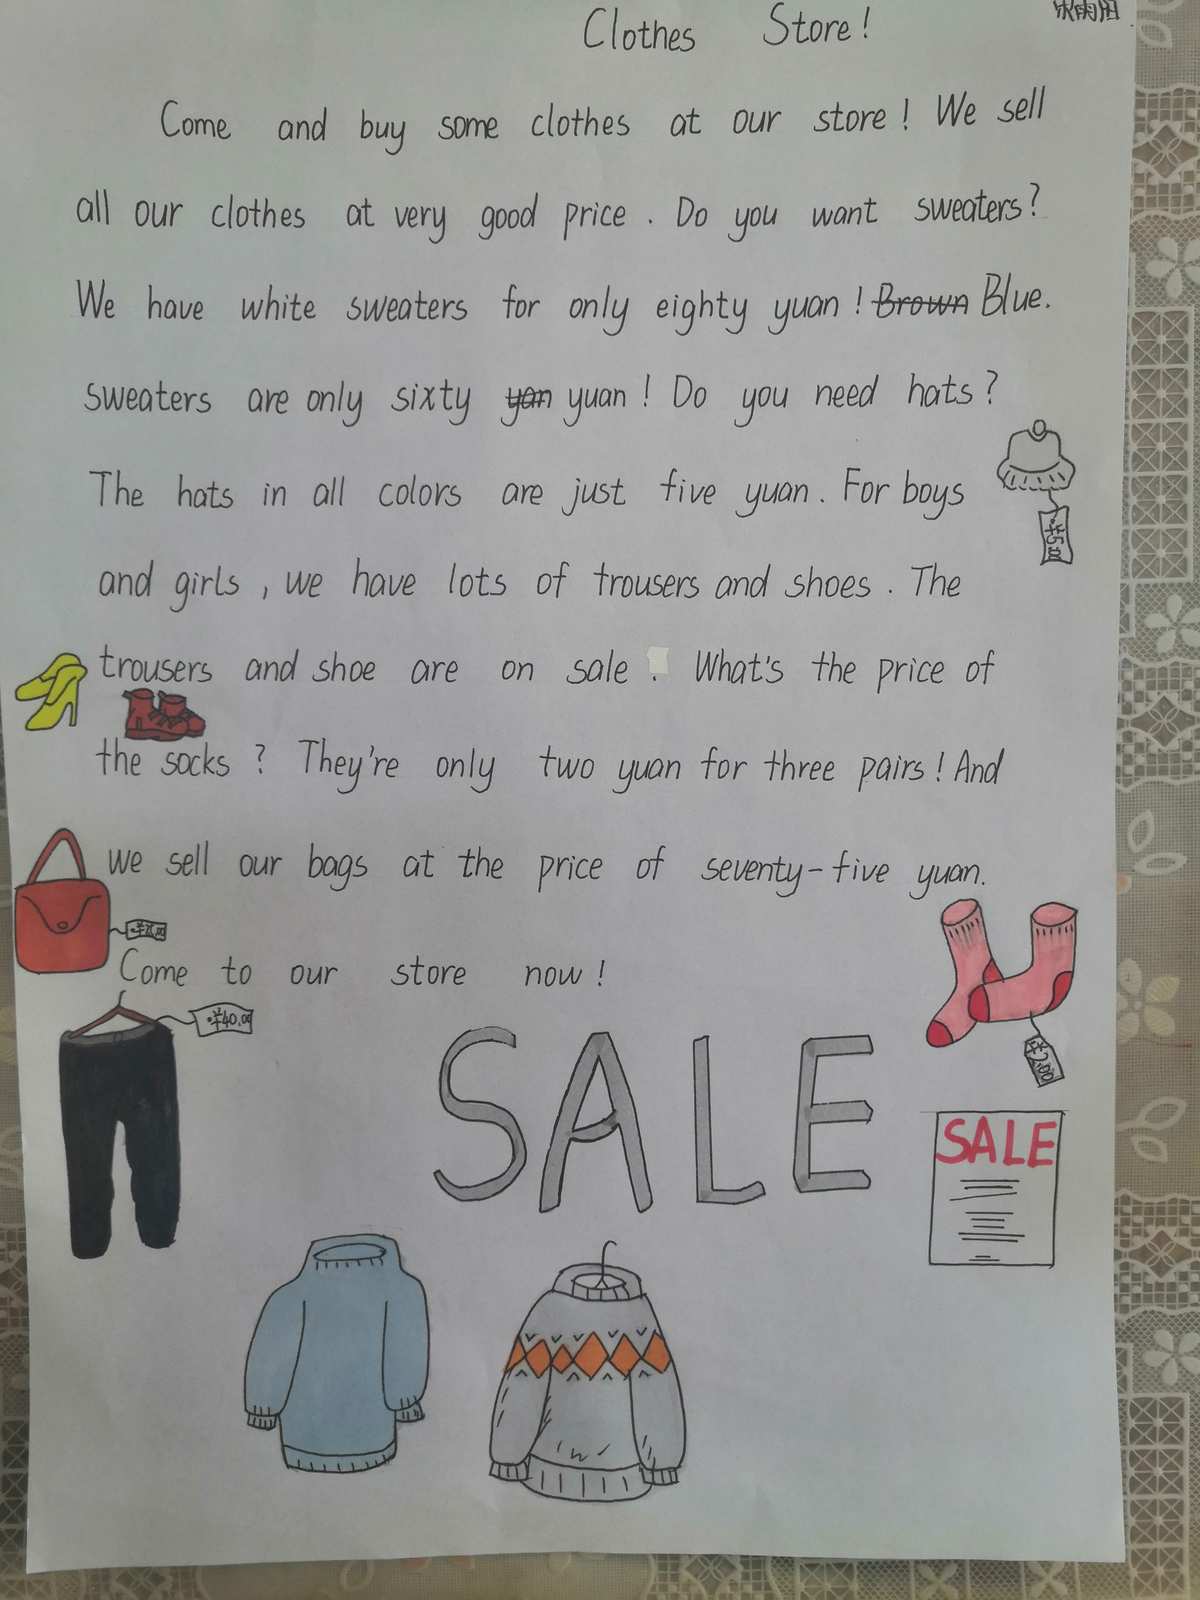 Clothes Store!
Come and buy some clothes at our store! We sell
all our clothes at very good price. Do you want sweaters?
We have white sweaters for only eighty yuan! Brown Blue.
sweaters are only sixty yan yuan! Do you need hats?
The hats in all colors are just five yuan. For boys
¥5.00
and girls, we have lots of trousers and shoes. The
trousers and shoe are on sale. What's the price of
the socks? They're only two yuan for three pairs! And
we sell our bags at the price of seventy-five yuan.
Come to our store now!
¥40.00
¥2.00
SALE
SALE